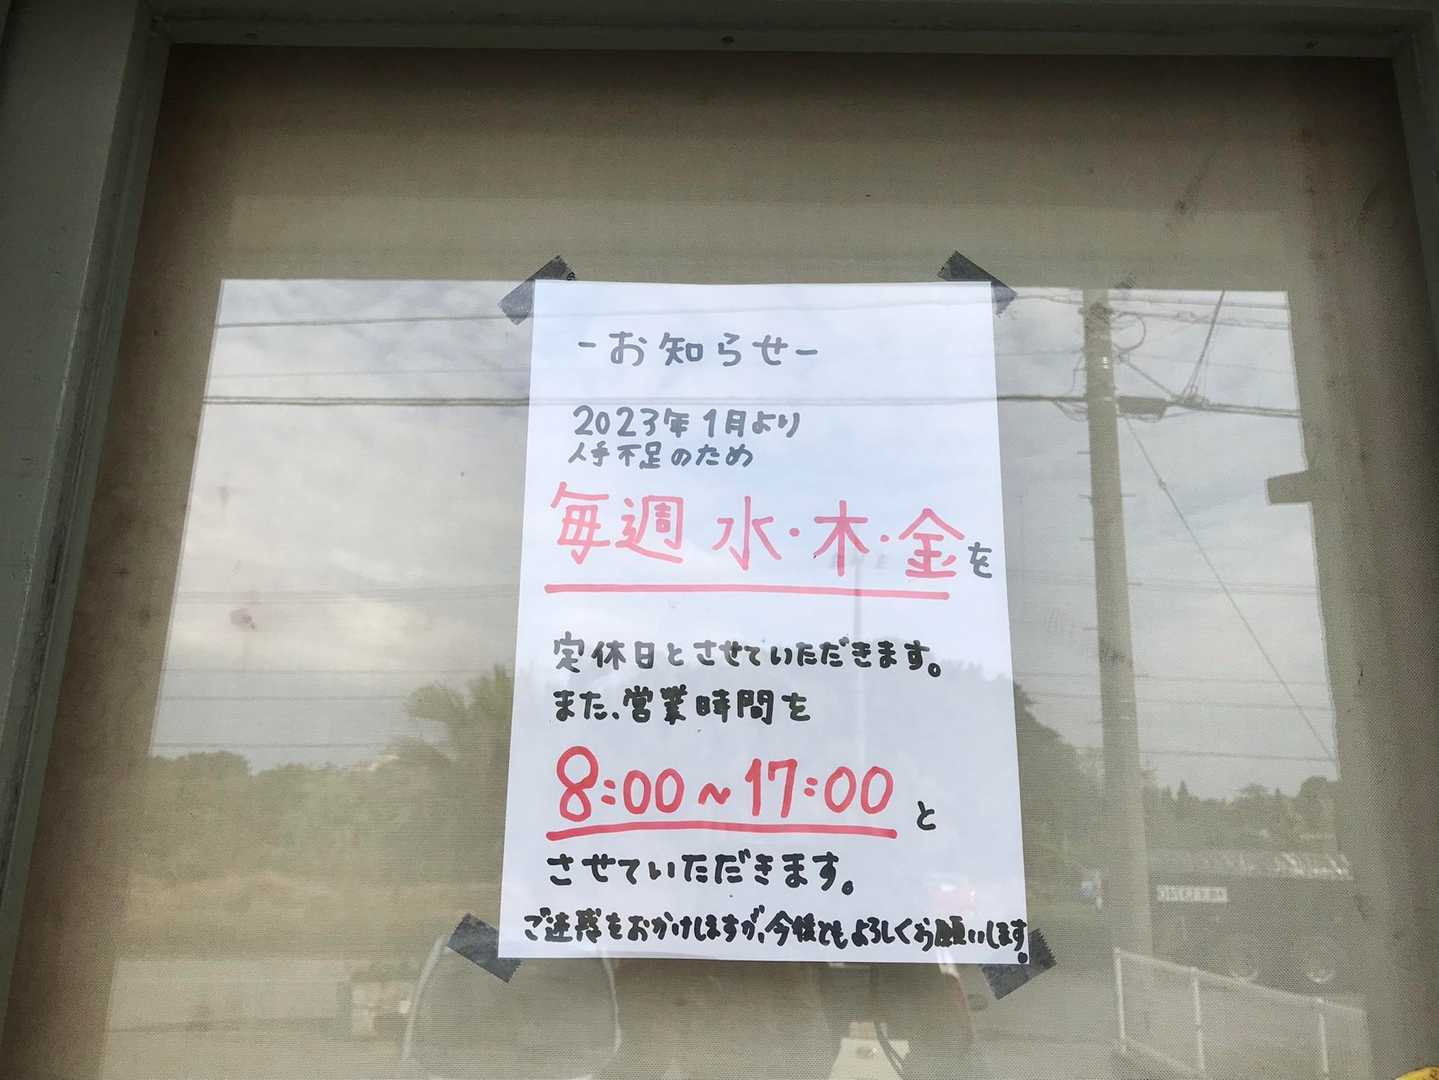 -お知らせ-
2023年1月より
人手不足のため
毎週 水・木・金を
定休日とさせていただきます。
また、営業時間を
8:00~17:00 と
させていただきます。
ご迷惑をおかけしますが、今後ともよろしくお願いします。